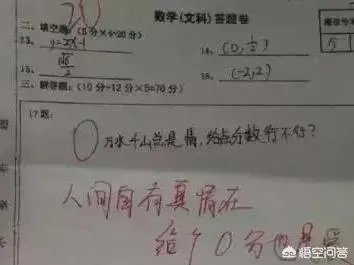 20
数学(文科)答题卷
二、填空题:(5分×4=20分)
13、y=2x-1
14、(0,½)
15、
16、(-2,2)
三、解答题:(10分+12分×5=70分)
17题:
0
万水千山总是情,给点分数行不行?
人间自有真情在
给个0分也是爱
悟空问答